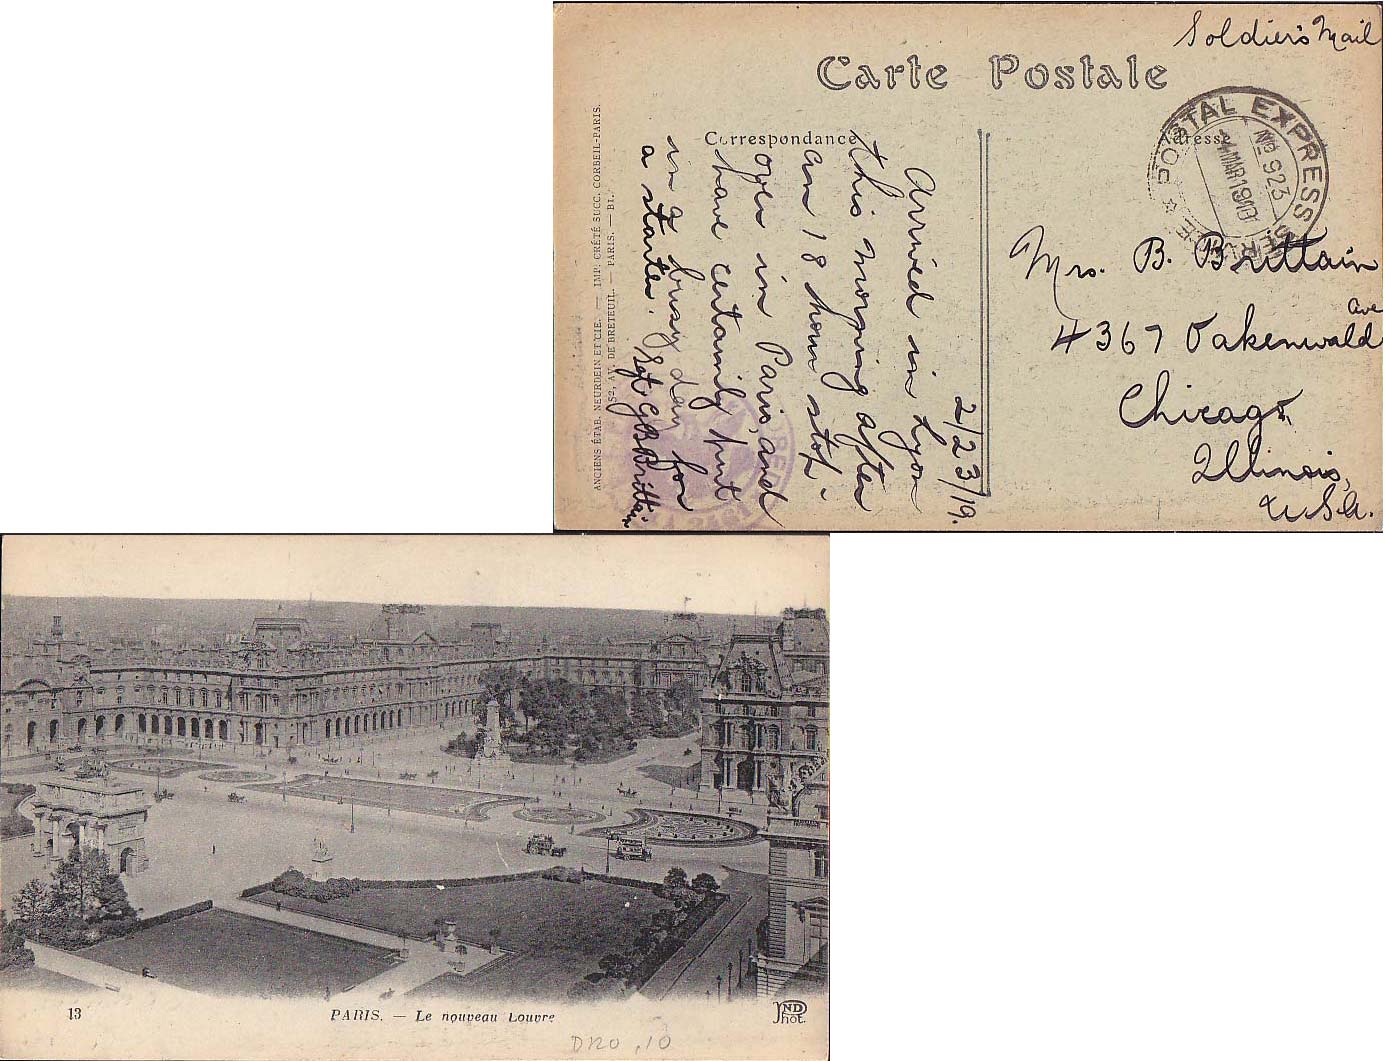 Soldier's Mail
Carte Postale
Correspondance
Adresse
POSTAL EXPRESS SERVICE
No 923
MAR 1919
2/23/19.
Arrived in Lyon
this morning after
an 18 hour stop-
over in Paris, and
have certainly put
in a busy day for
a starter. Sgt GBBrittain
Mrs. B. Brittain
4367 Oakenwald Ave
Chicago
Illinois,
U.S.A.
ANCIENS ÉTAB. NEURDEIN ET CIE. — IMP. CRÉTÉ SUCC. CORBEIL-PARIS.
52, AV. DE BRETEUIL. — PARIS. — BI.
13
PARIS. — Le nouveau Louvre
ND Phot.
DRO .10